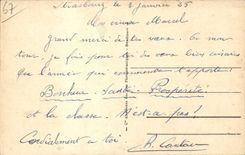 67
Strasbourg le 2 janvier 35
Mon cousin Marcel
Grand merci de tes vœux. À mon
tour, je fais pour toi des vœux bien sincères
Que l'année qui commence t'apporte
Bonheur Santé Prospérité
et la classe. N'est-ce pas!
Cordialement à toi